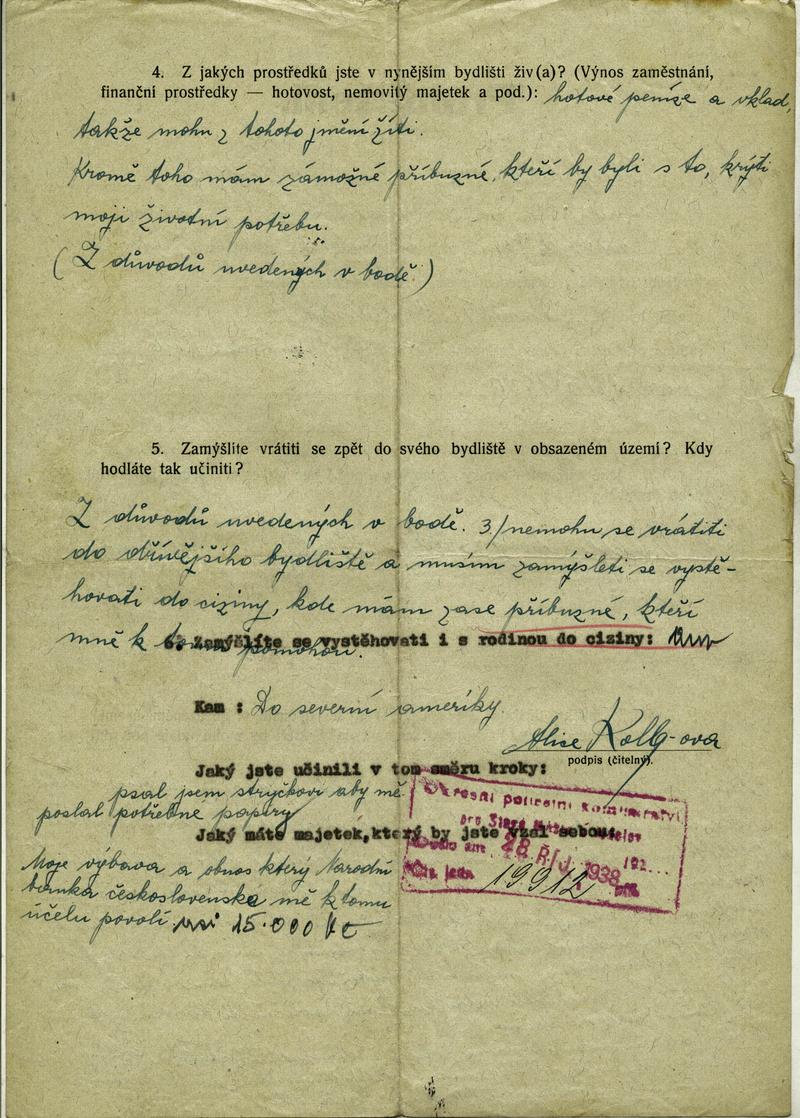 4. Z jakých prostředků jste v nynějším bydlišti živ(a)? (Výnos zaměstnání,
finanční prostředky — hotovost, nemovitý majetek a pod.): hotové peníze a vklad,
takže mohu z tohoto jmění žíti.
Kromě toho mám zámožné příbuzné, kteří by byli s to, krýti
moji životní potřebu.
(Z důvodů uvedených v bodě.)
5. Zamýšlíte vrátiti se zpět do svého bydliště v obsazeném území? Kdy
hodláte tak učiniti?
Z důvodů uvedených v bodě. 3./nemohu se vrátiti
do dřívějšího bydliště a musím zamýšleti se vystě-
hovati do ciziny, kde mám zase příbuzné, kteří
mně k tomu pomohou.
6. Zamýšlíte se vystěhovati i s rodinou do ciziny:
Kam : Do severní ameriky
Alice Kolb-ová
podpis (čitelný).
Jaký jste učinili v tom směru kroky:
psal jsem strýčkovi aby mě
poslal potřebné papíry
Jaký máte majetek, který by jste vzal sebou:
Moje výbava a obnos který Národní
banka československa mě k tomu
účelu povolí asi 15.000 Kč
Okresní policejní komisařství
pro Staré
Došlo dne 28.XI.1938
Čís. jedn. 19912